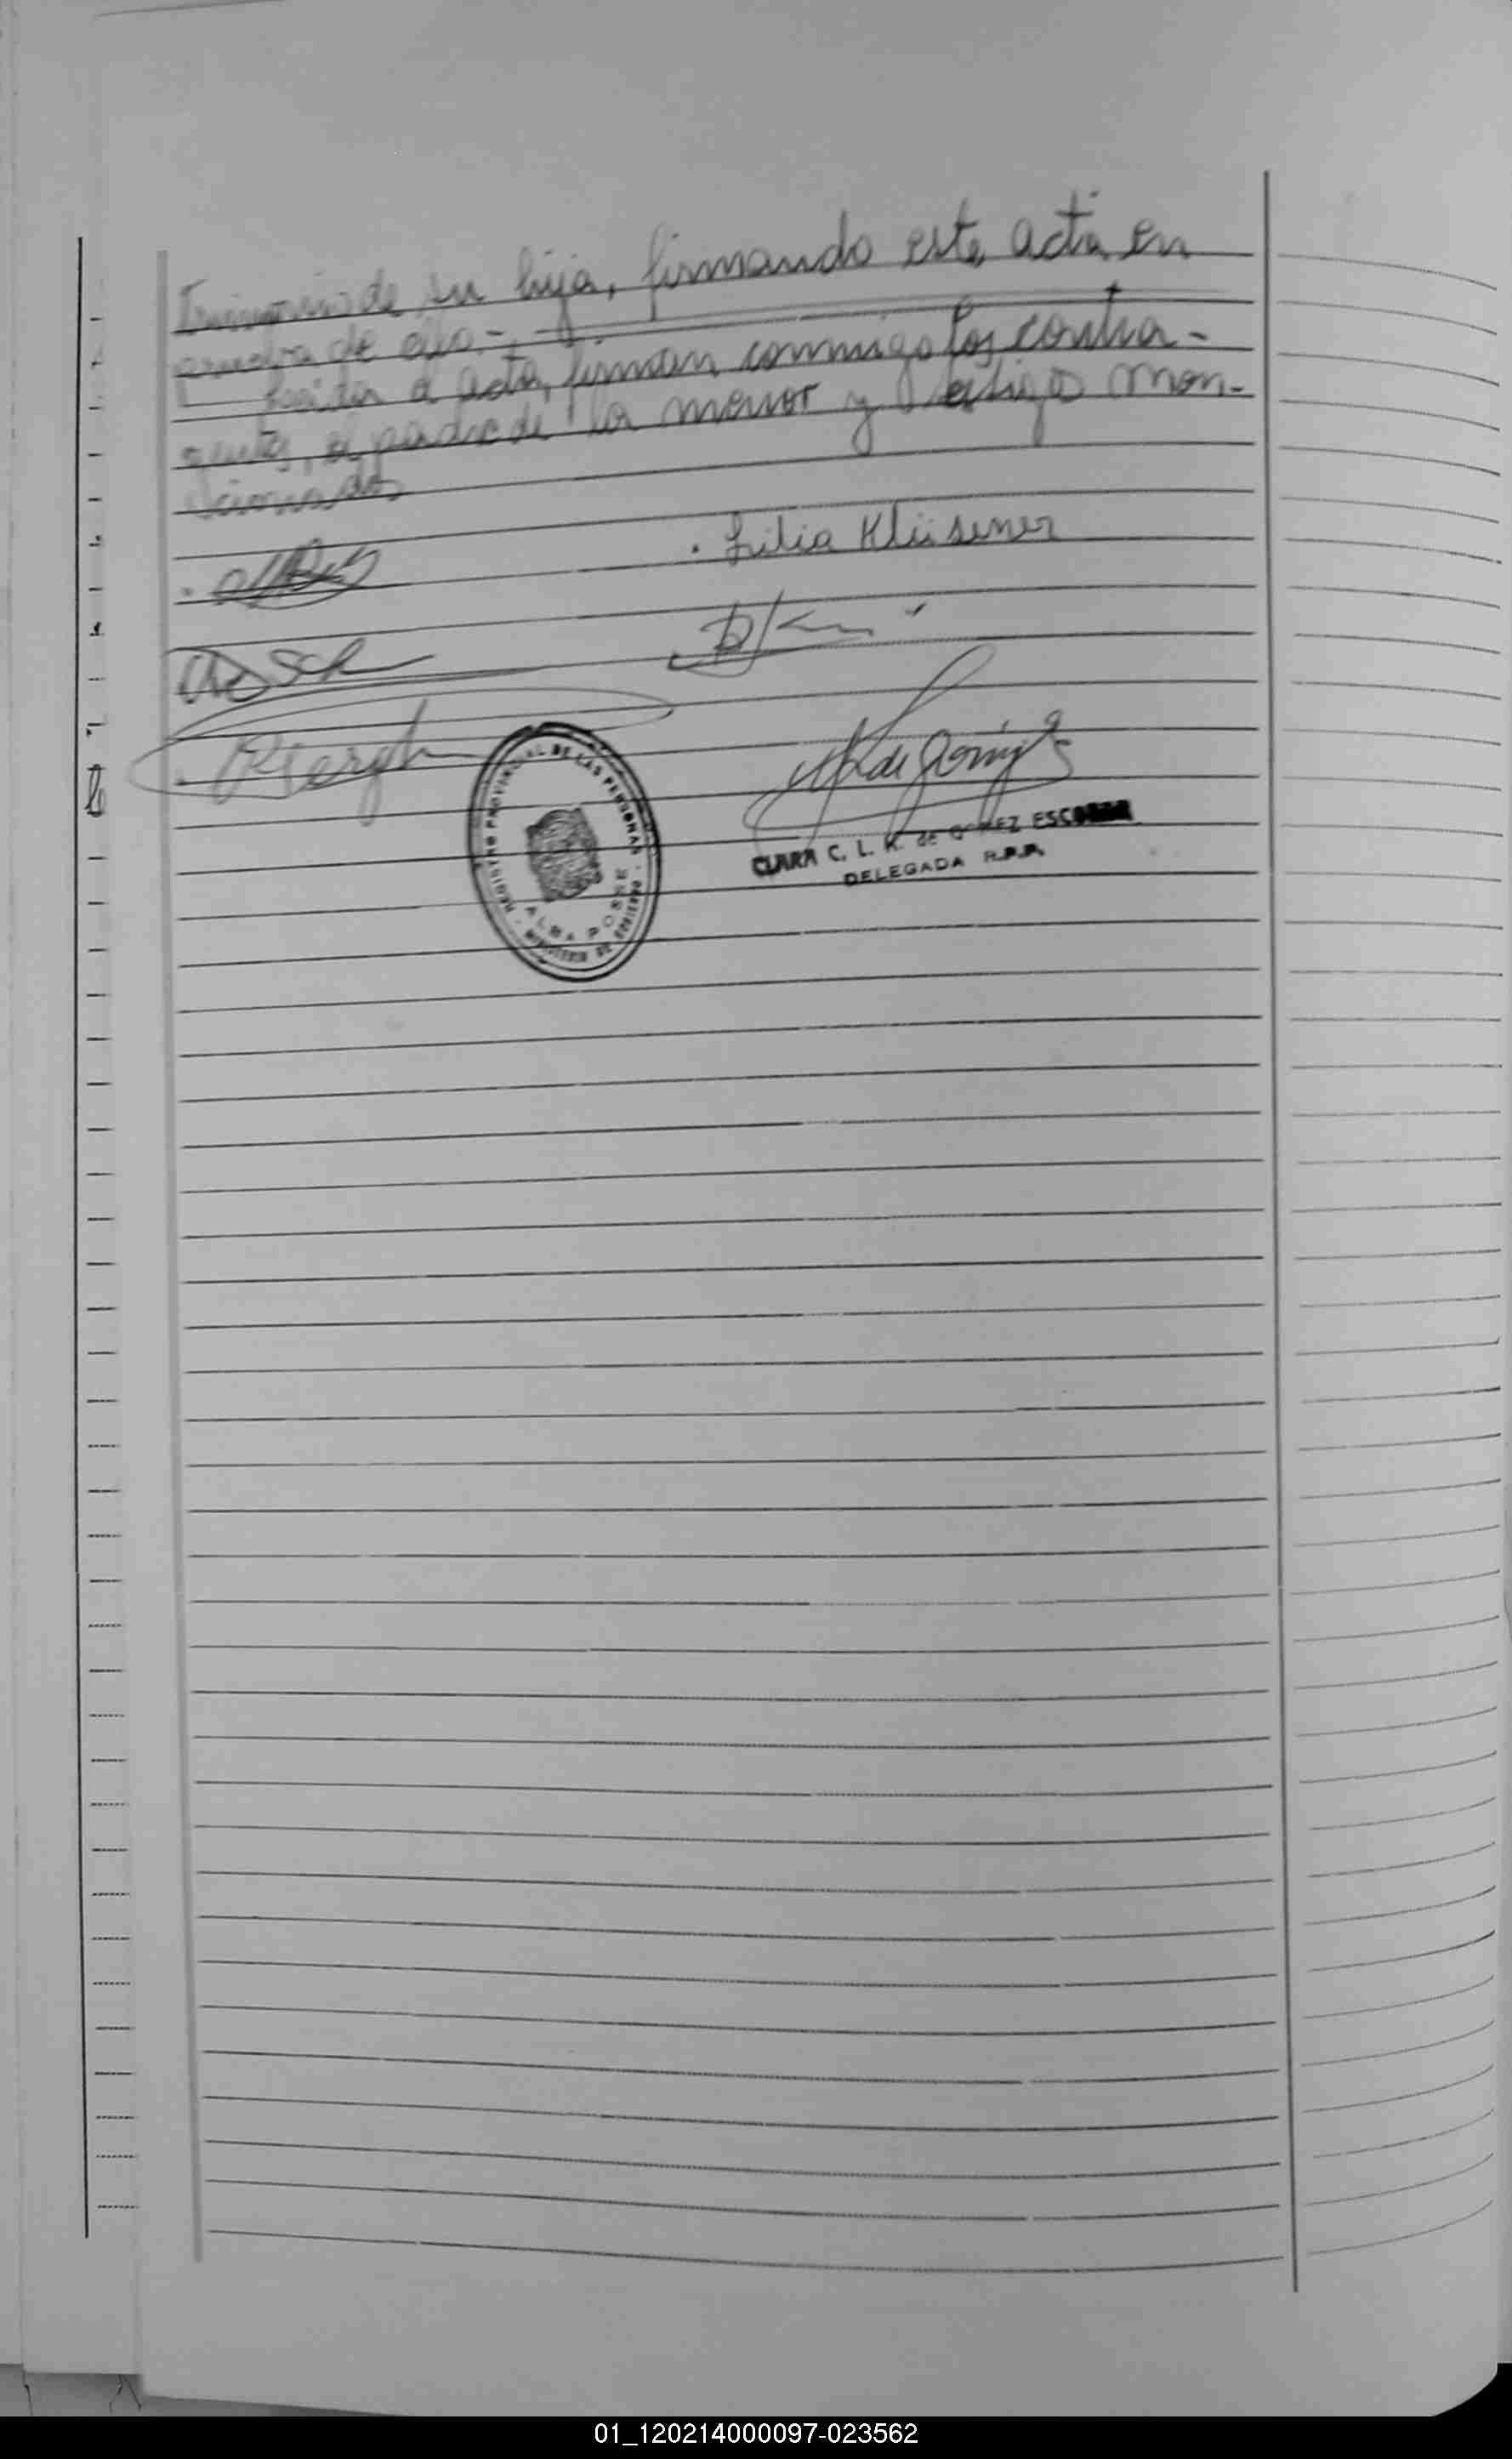 trimonio de su hija, firmando este acta en
prueba de ello.-
Leída el acta, firman conmigo los contra-
yentes, el padre de la menor y testigos men-
cionados
. Lilia Klüsener
REGISTRO PROVINCIAL DE LAS PERSONAS
ALBA POSSE
MINISTERIO DE GOBIERNO
CLARA C. L. K. de GOMEZ ESCOBAR
DELEGADA R.P.P.
01_120214000097-023562